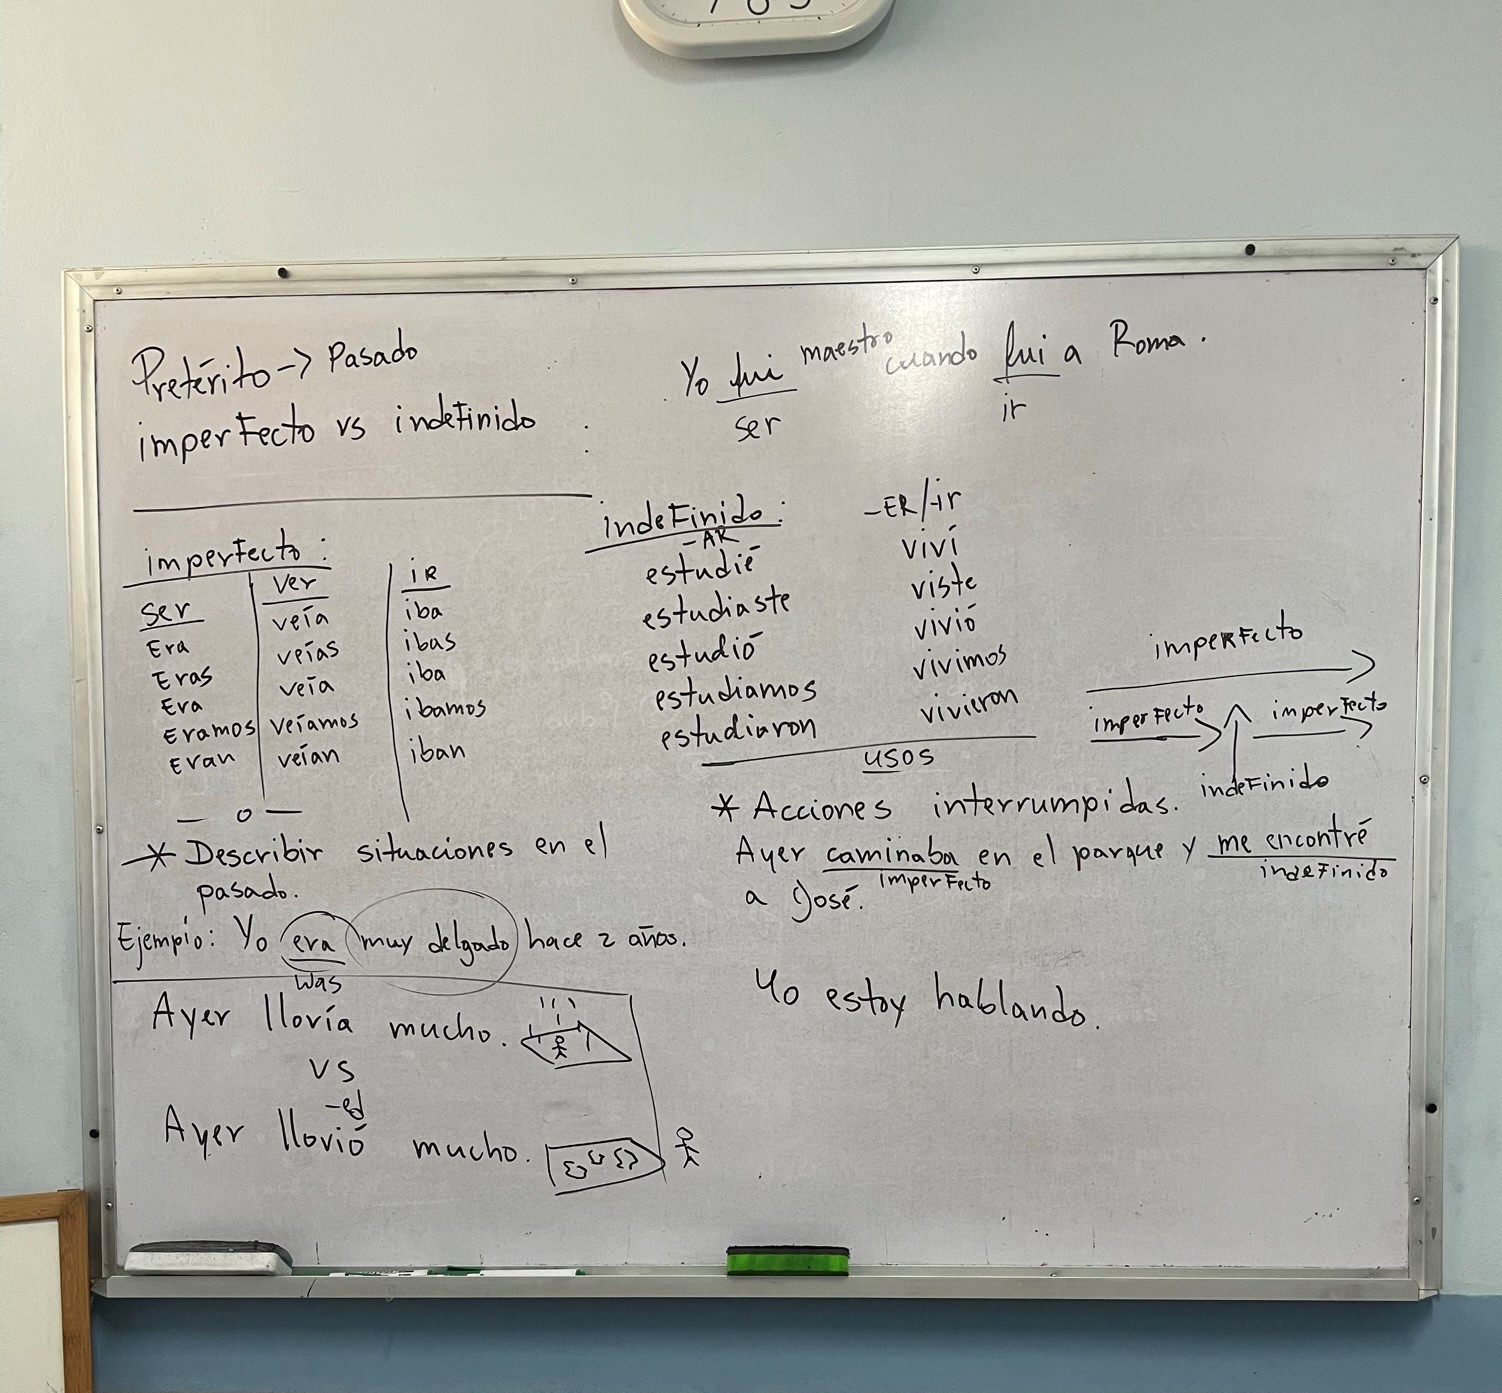 Pretérito -> Pasado
imperfecto vs indefinido
Yo fui maestro cuando fui a Roma.
ser
ir
imperfecto:
ser
Era
Eras
Era
Eramos
Eran
ver
veía
veías
veía
veíamos
veían
iR
iba
ibas
iba
ibamos
iban
indefinido:
-AR
estudié
estudiaste
estudió
estudiamos
estudiaron
-ER/-ir
viví
viste
vivió
vivimos
vivieron
imperfecto
imperfecto
imperfecto
indefinido
— o —
* Describir situaciones en el
pasado.
Ejemplo: Yo era muy delgado hace 2 años.
was
Ayer llovía mucho.
vs
-ed
Ayer llovió mucho.
usos
* Acciones interrumpidas.
Ayer caminaba en el parque y me encontré
imperfecto
indefinido
a José.
Yo estoy hablando.